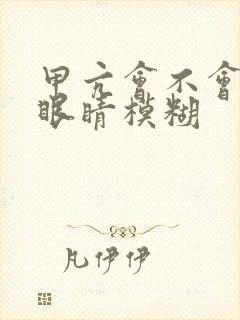 甲亢會不會
眼睛模糊
凡伊伊